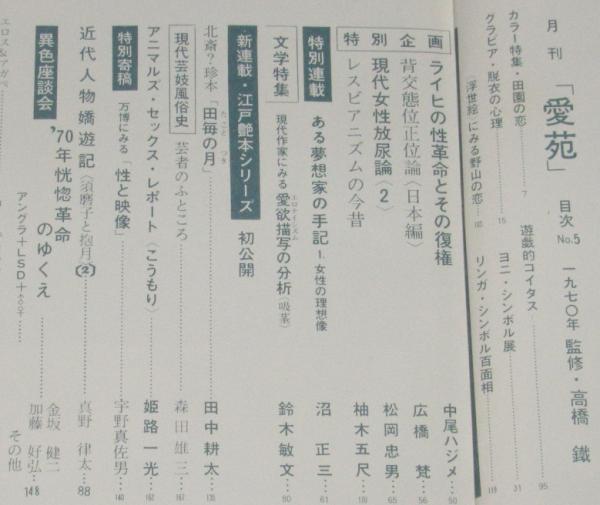 月刊「愛苑」目次 No.5 一九七〇年 監修・高橋 鐵
カラー特集・田園の恋……7
グラビア・脱衣の心理……15
〈浮世絵〉にみる野山の恋……
遊戯的コイタス……95
ヨニ・シンボル展……31
リンガ・シンボル百面相……119
特別企画
ライヒの性革命とその復権 中尾ハジメ…50
背交態位正位論〈日本編〉 広橋 梵…56
現代女性放尿論〈2〉 松岡忠男…65
レスビアニズムの今昔 柚木五尺…
特別連載
ある夢想家の手記 1.女性の理想像 沼 正三…61
文学特集
現代作家にみる愛欲描写の分析〈吸茎〉 鈴木敏文…90
エロチイズム
新連載・江戸艶本シリーズ 初公開
北斎?珍本「田毎の月」 田中耕太…135
たごと つき
現代芸妓風俗史 芸者のふところ 森田雄三…167
アニマルズ・セックス・レポート〈こうもり〉 姫路一光…162
特別寄稿 万博にみる「性と映像」 宇野真佐男…140
近代人物嬌遊記〈須磨子と抱月〉〔2〕 真野律太…88
異色座談会
'70年恍惚革命のゆくえ
アングラ+LSD+♂♀……
金坂健二
加藤好弘…148
その他
エロス&アガペ